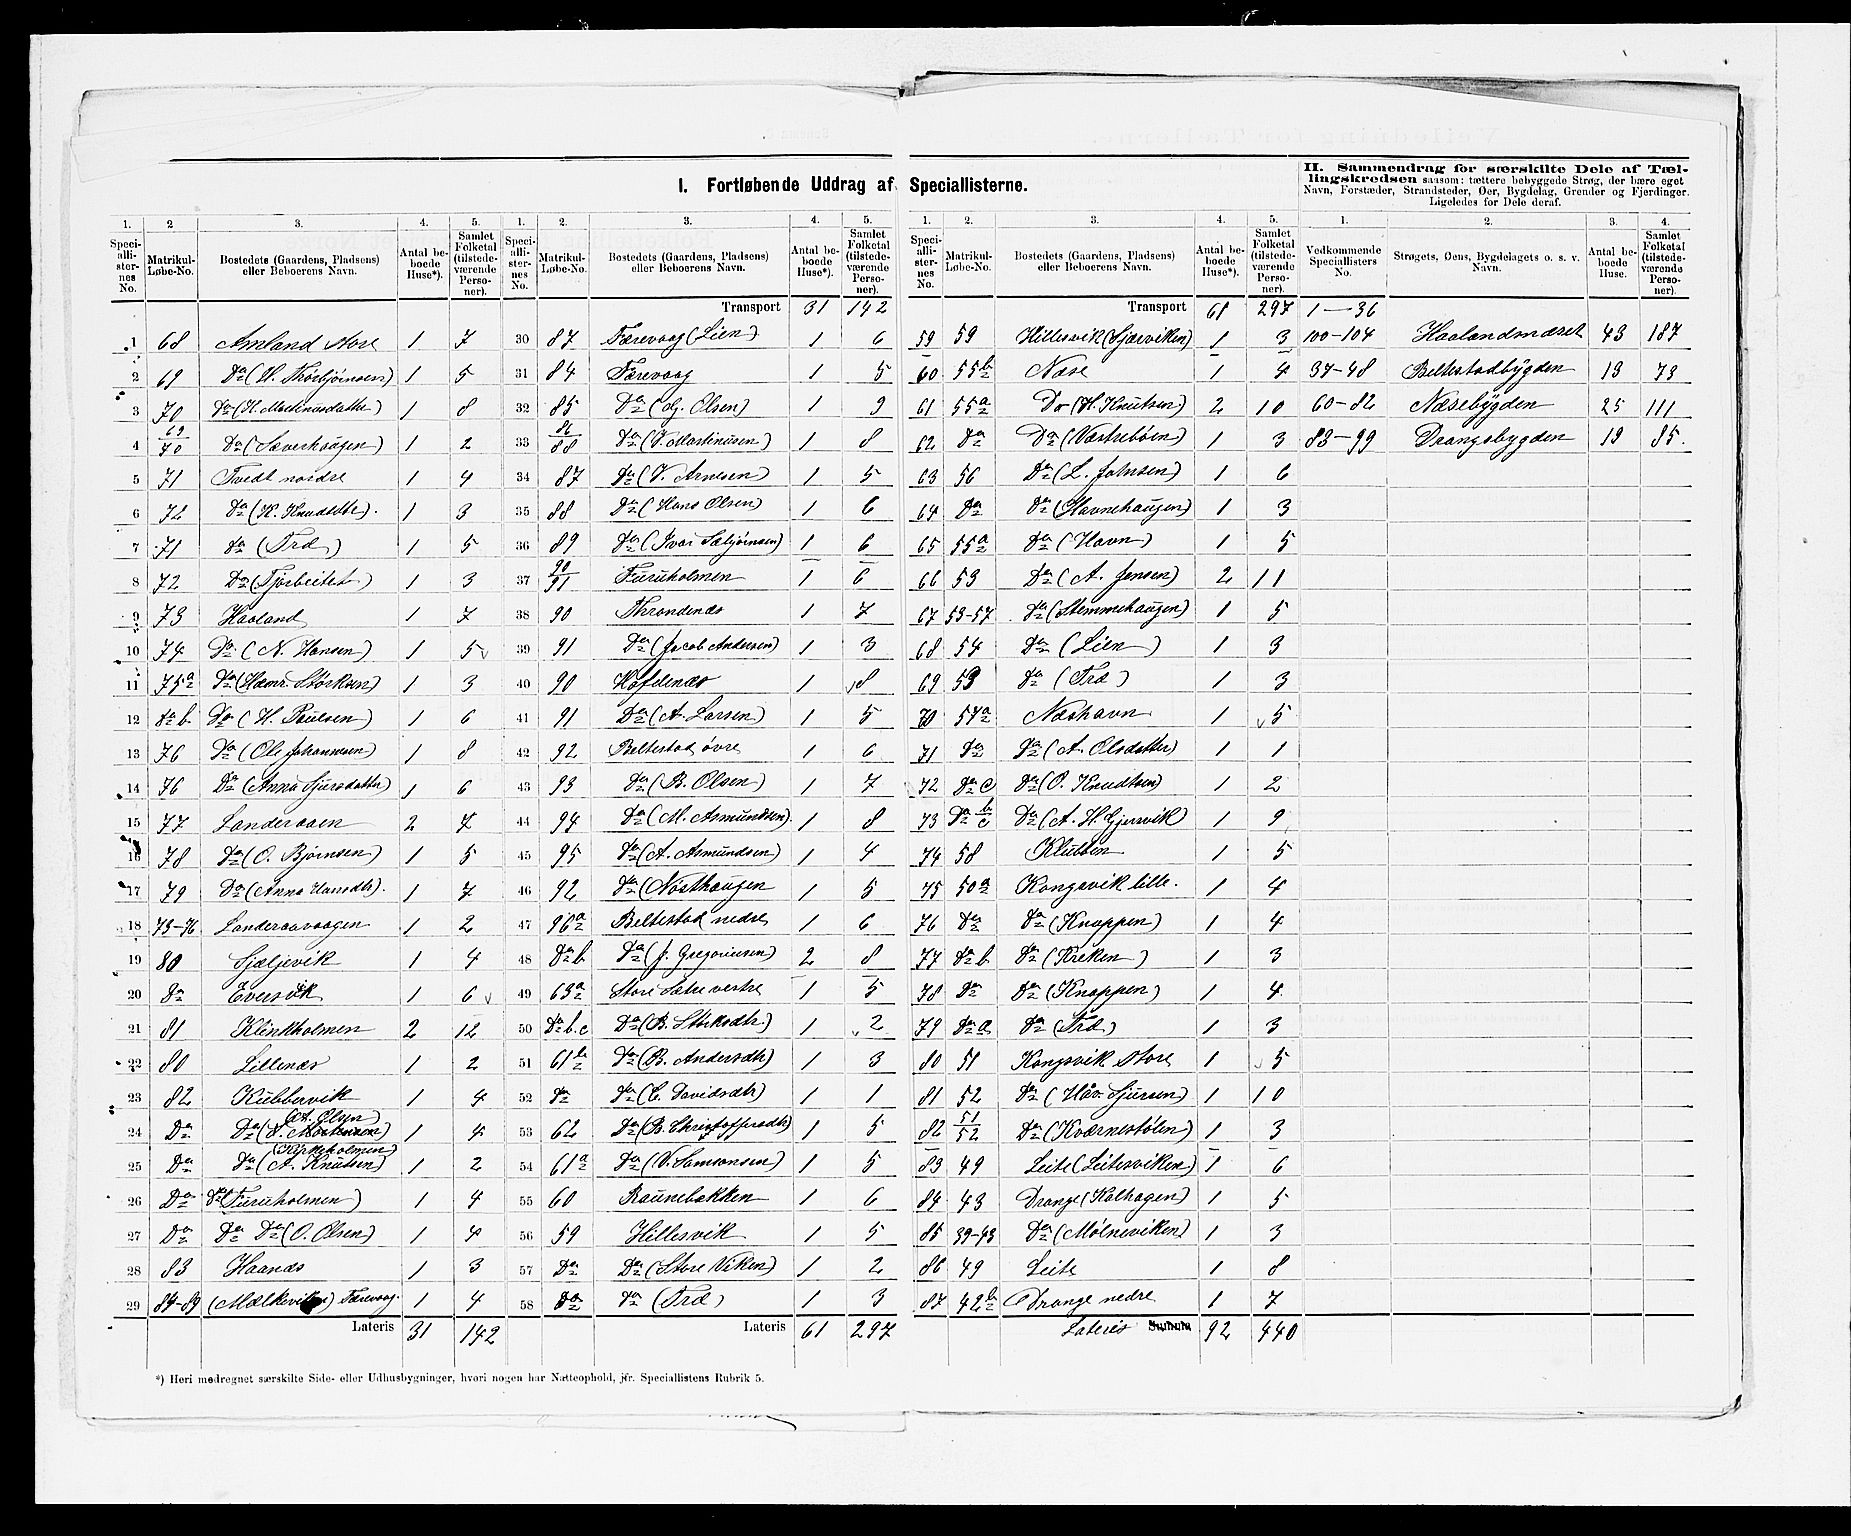 I. Fortløbende Uddrag af Speciallisterne.
II. Sammendrag for særskilte Dele af Tællingskredsen saasom: tættere bebyggede Strøg, der bære eget Navn, Forstæder, Strandsteder, Øer, Bygdelag, Grender og Fjerdinger. Ligeledes for Dele deraf.
1. 2 3. 4. 5.
Speciallisternes No. Matrikul-Løbe-No. Bostedets (Gaardens, Pladsens) eller Beboerens Navn. Antal beboede Huse*). Samlet Folketal (tilstedeværende Personer).
1 68 Amland store 1 7
2 69 Do (H. Thorbjørnsen) 1 5
3 70 Do (H. Martinusdatter) 1 8
4 69/70 Do (Saverhaagen) 1 2
5 71 Tvedt nordre 1 4
6 72 Do (K. Knudsdtr). 1 3
7 71 Do (Træ) 1 5
8 72 Do (Tjørbeitet) 1 3
9 73 Haaland 1 7
10 74 Do (N. Hansen) 1 5
11 75a Do (Hemr. Størksen) 1 3
12 Do b. Do (H. Paulsen) 1 6
13 76 Do (Ole Johannesen) 1 8
14 76 Do (Anna Sjursdatter) 1 6
15 77 Landeraaen 2 7
16 78 Do (O. Bjørnsen) 1 5
17 79 Do (Anna Hansdtr). 1 7
18 73-76 Landeraavaagen 1 2
19 80 Sjæljevik 1 4
20 Do Eversvik 1 6
21 81 Klinkholmen 2 12
22 80 Lillenæs 1 2
23 82 Kubbervik 1 4
24 Do Do (A. Olsen 1 4
25 Do Do (A. Knutsen) 1 2
26 Do Do Furuholmen) 1 4
27 Do Do Do (O. Olsen) 1 4
28 83 Haanæs 1 3
29 84-89 (Mælkeviken) Færevaag. 1 4
Lateris 31 142
1. 2. 3. 4. 5.
Speciallisternes No. Matrikul-Løbe-No. Bostedets (Gaardens, Pladsens) eller Beboerens Navn. Antal beboede Huse*). Samlet Folketal (tilstedeværende Personer).
Transport 31 142
30 87 Færevaag (Lien) 1 6
31 84 Færevaag 1 5
32 85 Do (Gj. Olsen) 1 9
33 86/88 Do (V. Martinusen) 1 8
34 87 Do (V. Arnesen) 1 5
35 88 Do (Hans Olsen) 1 6
36 89 Do (Ivar Sæbjørnsen) 1 6
37 90/91 Furuholmen 1 6
38 90 Throndenæs 1 7
39 91 Do (Jacob Andersen) 1 3
40 90 Hofdenæs 1 8
41 91 Do (A. Larsen) 1 5
42 92 Beltestad øvre 1 6
43 93 Do (B. Olsen) 1 7
44 94 Do (M. Asmundsen). 1 8
45 95 Do (A. Asmundsen) 1 4
46 92 Do (Nøsthaugen 1 5
47 96a Beltestad nedre 1 6
48 Do b Do (J. Gregoriusen) 2 8
49 63a Store Sætre vestre 1 5
50 Do b.c Do (B. Størksdtr.) 1 2
51 61b Do (B. Andersdtr) 1 3
52 Do Do (C. Davidsdtr) 1 1
53 62 Do (B. Christoffersdtr) 1 5
54 61a Do (V. Samsonsen) 1 5
55 60 Raunebakken 1 6
56 59 Hillesvik 1 5
57 Do Do (Store Viken) 1 2
58 Do Do (Træ) 1 3
Lateris 61 297
1. 2. 3. 4. 5.
Speciallisternes No. Matrikul-Løbe-No. Bostedets (Gaardens, Pladsens) eller Beboerens Navn. Antal beboede Huse*). Samlet Folketal (tilstedeværende Personer).
Transport 61 297
59 59 Hillesvik (Sjærviken) 1 3
60 55b Næse 1 4
61 55a Do (H. Knutsen) 2 10
62 Do Do (Væstrebøen) 1 3
63 56 Do (L. Johnsen) 1 6
64 Do Do (Havnehaugen) 1 3
65 55a Do (Havn) 1 5
66 53 Do (A. Jensen) 2 11
67 53-57 Do (Stemmehaugen) 1 5
68 54 Do (Lien) 1 3
69 53 Do (Træ) 1 3
70 54a Næshavn 1 5
71 Do Do (A. Olsdatter) 1 1
72 Do c Do (O. Knudtsen) 1 2
73 Do b/c Do (A. H. Gjersvik) 1 9
74 58 Klubben 1 5
75 50a Kongsvik lille. 1 4
76 Do Do (Knappen) 1 4
77 Do b Do (Kreken) 1 3
78 Do Do (Knappen) 1 4
79 Do a Do (Træ) 1 3
80 51 Kongsvik store 1 5
81 52 Do (Hav. Sjursen) 1 10
82 51/52 Do (Kværnestølen) 1 3
83 49 Leite (Leitesviken) 1 6
84 43 Drange (Kalhagen) 1 5
85 39-43 Do (Mølneviken) 1 3
86 49 Leite 1 8
87 42b Drange nedre 1 7
Lateris Summa 92 440
1. 2. 3. 4.
Vedkommende Speciallisters No. Strøgets, Øens, Bygdelagets o. s. v. Navn. Antal beboede Huse. Samlet Folketal (tilstedeværende Personer).
1—36
100-104 Haalandmaret 43 187
37-48 Beltestadbygden 13 73
60-82 Næsebygden 25 111
83-99 Drangsbygden 19 85.
*) Heri medregnet særskilte Side- eller Udhusbygninger, hvori nogen har Natteophold, jfr. Speciallistens Rubrik 5.